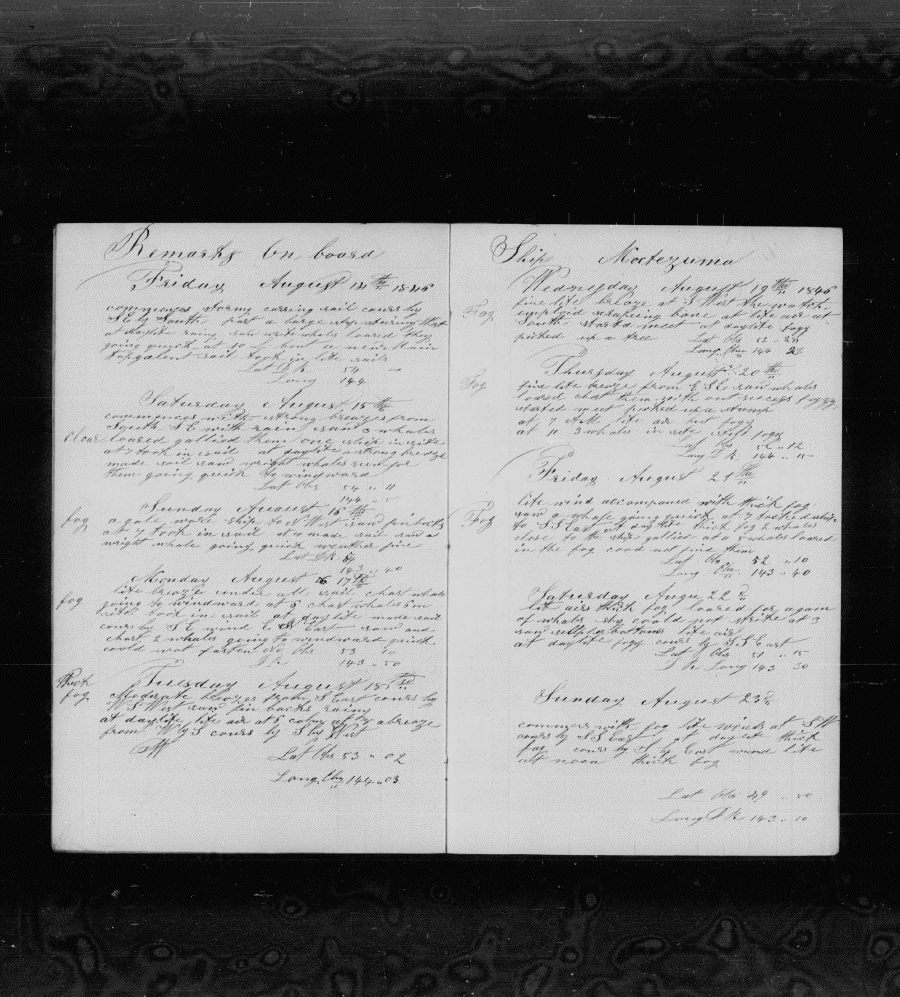 Remarks On board
Friday August 14th 1846
commences stormy carring sail cours by
S E by South past a large ship stering West
at daylite rainy saw write whales loared they
going quick at 10 A M bent a new main
topgalent sail took in lite sails
Lat D R 54
Long 144
Saturday August 15th
commences with strong breezes from
South S E with rain saw 3 whales
Clear loared gallied them one ship in site
at 7 took in sail at daylite a strong breeze
made sail saw wright whales run for
them going quick to windward
Lat Obs 54 " 11
144 " 5
Sunday August 16th
fog a gale wore ship to N West saw finbacks
at 7 took in sail at 4 made sail saw a
wright whale going quick weather fine
Lat D R 54
143 " 40
Monday August 17th
lite breezes under all sail chast whale
fog going to windward at 8 chast whales in
site took in sail at daylite made sail
cours by S E wind E East saw and
chast 2 whales going to windward quick
could not fasten Obs 53 10
D R 143 " 50
Thick fog
Tuesday August 18th
Moderate breezes from S East cours by
W S West saw fin backs rainy
at daylite lite air at 5 calm after a breeze
from W by S cours by S by West
Lat Obs 53 " 02
Long Obs 144 " 03
Ship Moctezuma
Wednesday August 19th 1846
Fog fine lite breeze at S West the watch
employd scrapeing bone at lite air at
South startd meet at daylite fogy
picked up a tree Lat Obs 52 " 20
Long Obs 144 23
Thursday August 20th
Fog fine lite breeze from E S E saw whales
loared chast them with out success fogy
started meet picked up a stump
at 7 A M lite air but fogy
at 11 3 whales in site fogy
Lat Obs 52 " 12
Long D R 144 " 15
Friday August 21th
lite wind accompaned with thick fog
Fog saw a whale going quick at 7 tacked ship
to S S East at daylite thick fog 2 whales
close to the ship gallied at 11 5 whales loared
in the fog coud not find them
Lat Obs 52 " 10
Long Obs 143 " 40
Saturday Augu 22d
lit airs thick fog loared for a gam
of whales shy could not strike at 3
saw sulpherbottoms lite air
at daylite fogy cours by S S East
Lat Obs 51 " 15
D R Long 143 30
Sunday August 23d
commences with fog lite winds at S W
cours by S S East at daylite thick
fog cours by S by East wind lite
at noon thick fog
Lat Obs 49 " 50
Long D R 143 " 10